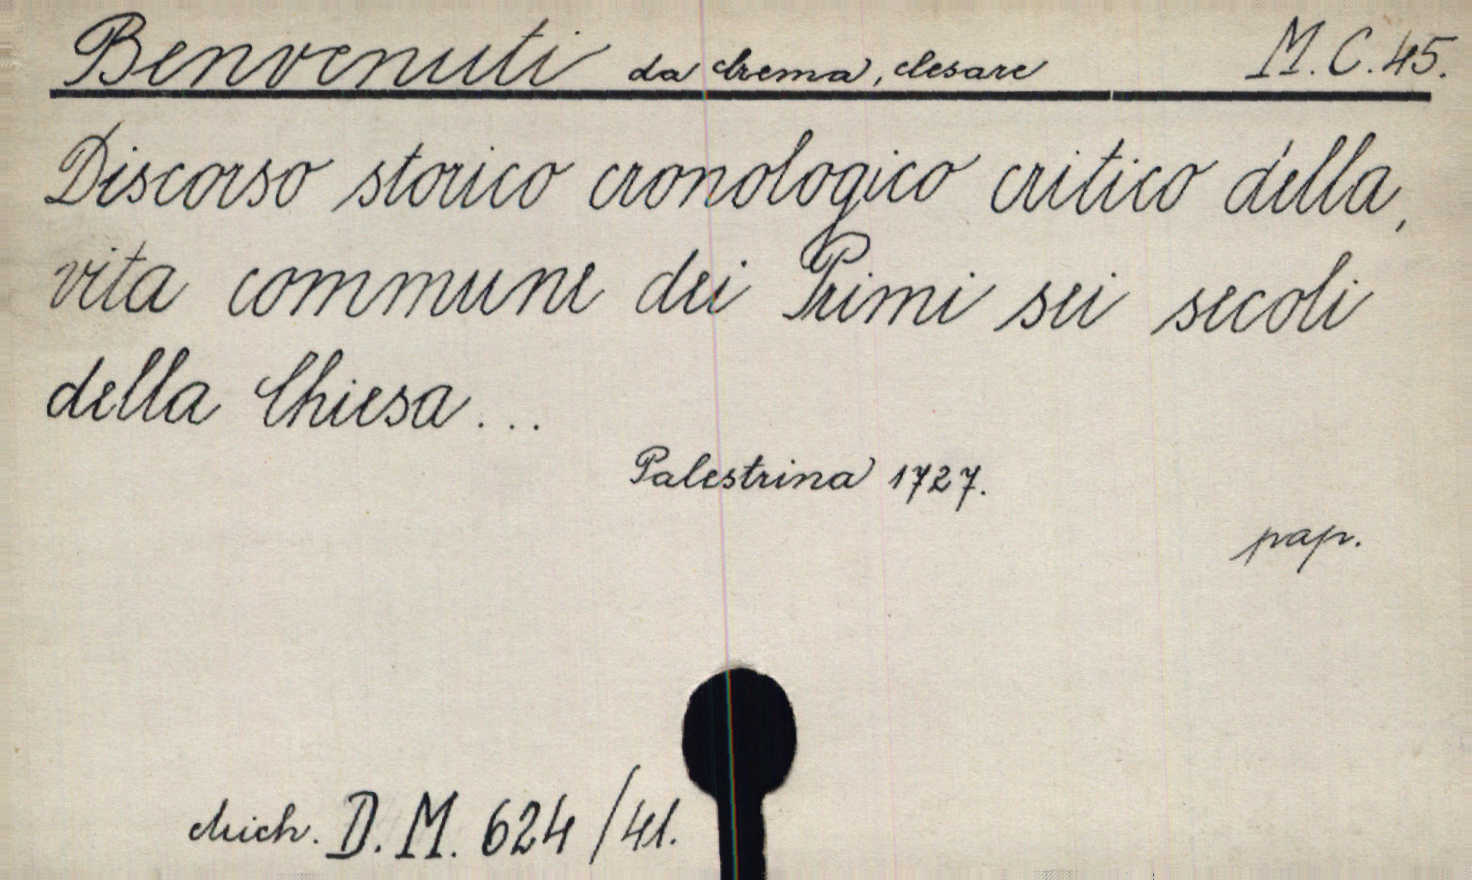 Benvenuti da Crema, Cesare M.C.45.
Discorso storico cronologico critico della,
vita commune dei Primi sei secoli
della Chiesa...
Palestrina 1727.
pap.
D.M. 624/41.